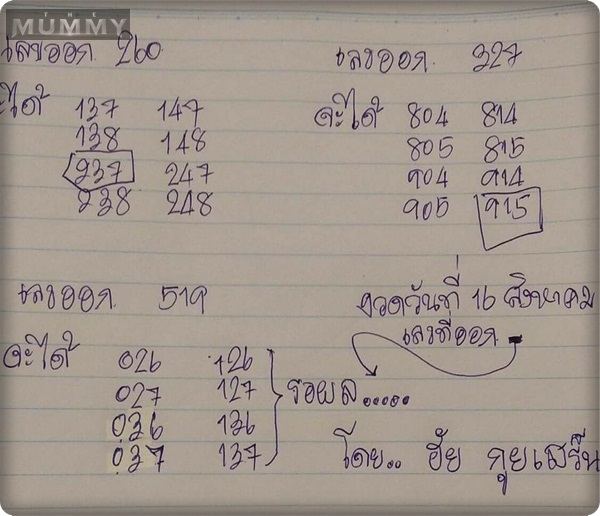 THE
MUMMY
เลขออก 260
จะได้ 137 147
138 148
237 247
238 248
เลขออก 327
จะได้ 804 814
805 815
904 914
905 915
เลขออก 519
จะได้ 026 126
027 127
036 136
037 137
รอผล.....
งวดวันที่ 16 สิงหาคม
เลขที่ออก
โดย.. ฮัย กูยเสรีน